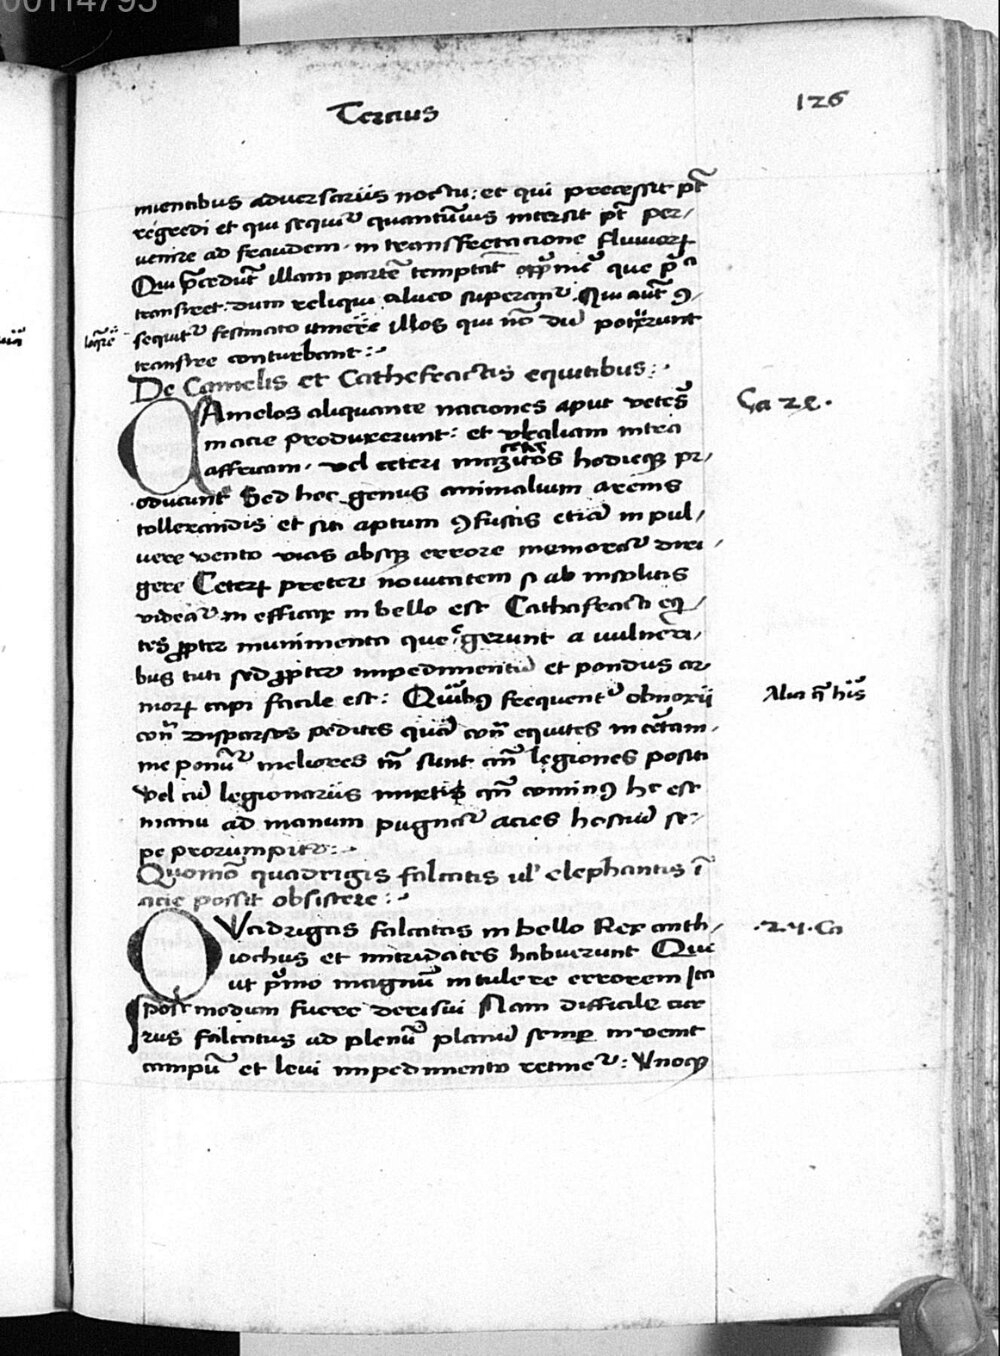 00114795
Tercius
126
mientibus adversariis noctu: et qui precessit pt̄
regredi et qui sequit᷑ quantūvis intersit pt̄ per/
venire ad fraudem. in transfretacione fluviorꝝ
Qui p̄cedūt illam partē temptāt opp̄mē que
transiret dum reliqui alveo superant᷑. Qui aūt ꝯ/
sequit᷑ festinato itinere illos qui nō dū potuerunt
transire conturbant:
De Camelis et Cathefractis equitibus:
CAmelos aliquante naciones aput veteres
in acie produxerunt: et intra
affricam. vel ceteri hodieqꝫ pr/
oducunt Sed hoc genus animalium arenis
tollerandis et siti aptum ꝯfusas etiā in pul/
vere vento vias absqꝫ errore memorat᷑ diri/
gere Ceterꝝ preter novitatem si ab insolitis
videat᷑ in efficax in bello est Cathafracti eq̄/
tes ꝓpter munimenta que gerunt a vulneri/
bus tuti sed ꝓpter impedimentū et pondus ar
morꝝ capi facile est: frequent᷑ obnoxii
con̄ dispersos pedites quā con̄ equites in c̄tam/
me ponūt᷑ meliores tn̄ sunt legiones positi
vel cū legionariis mixtis qn̄ cominꝰ hc est
manu ad manum pugnat᷑ acies hostiū se/
pe prorumpitᷣ:
Quomō quadrigis falcatis ul' elephantis ī
acie possit obsistere:
QVadrigas falcatas in bello Rex anth/
iochus et mitridates habuerunt Que
ut p̄mo magnū intulere errorem Ita
postmodum fuere derisui Nam difficile cur
rus falcatus ad plenū planū semper invenit
campū et levi impedimento retinet᷑: Vnoqꝫ
Ca 2
.24. Ca